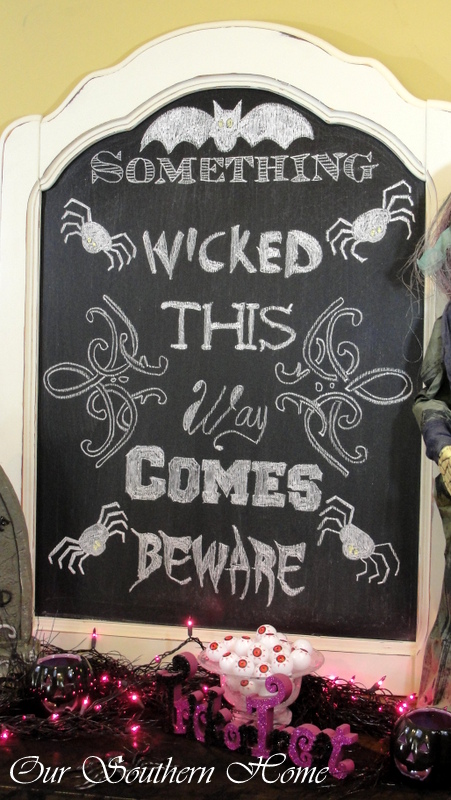 SOMETHING
WICKED
THIS
Way
COMES
BEWARE
Trick or Treat
Our Southern Home